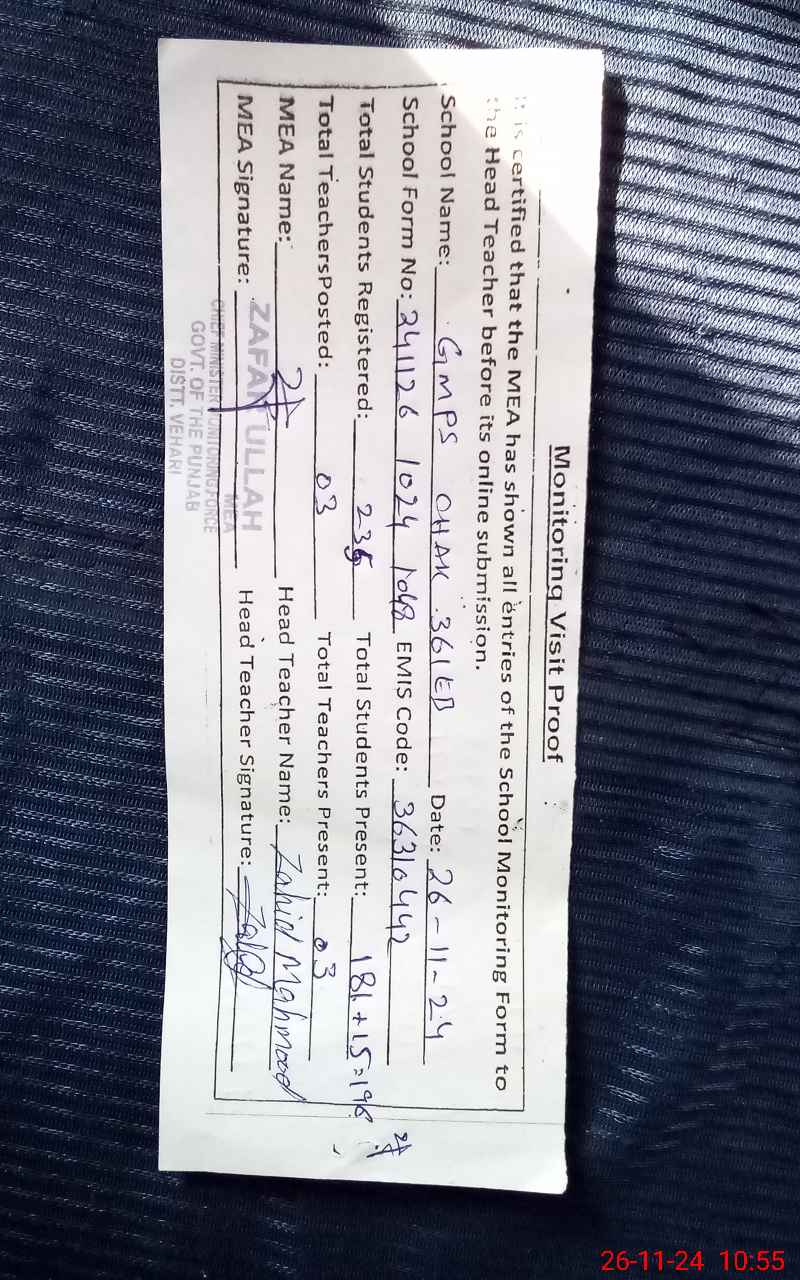 Monitoring Visit Proof
It is certified that the MEA has shown all entries of the School Monitoring Form to
the Head Teacher before its online submission.
School Name: GMPS CHAK 361EB Date: 26-11-24
School Form No: 241126 1024 1048 EMIS Code: 36310442
Total Students Registered: 235 Total Students Present: 181+15=196
Total TeachersPosted: 03 Total Teachers Present: 03
MEA Name: Head Teacher Name: Zahid Mahmood
MEA Signature: Head Teacher Signature: Zahid
ZAFAR ULLAH
MEA
CHIEF MINISTER MONITORING FORCE
GOVT. OF THE PUNJAB
DISTT. VEHARI
26-11-24 10:55